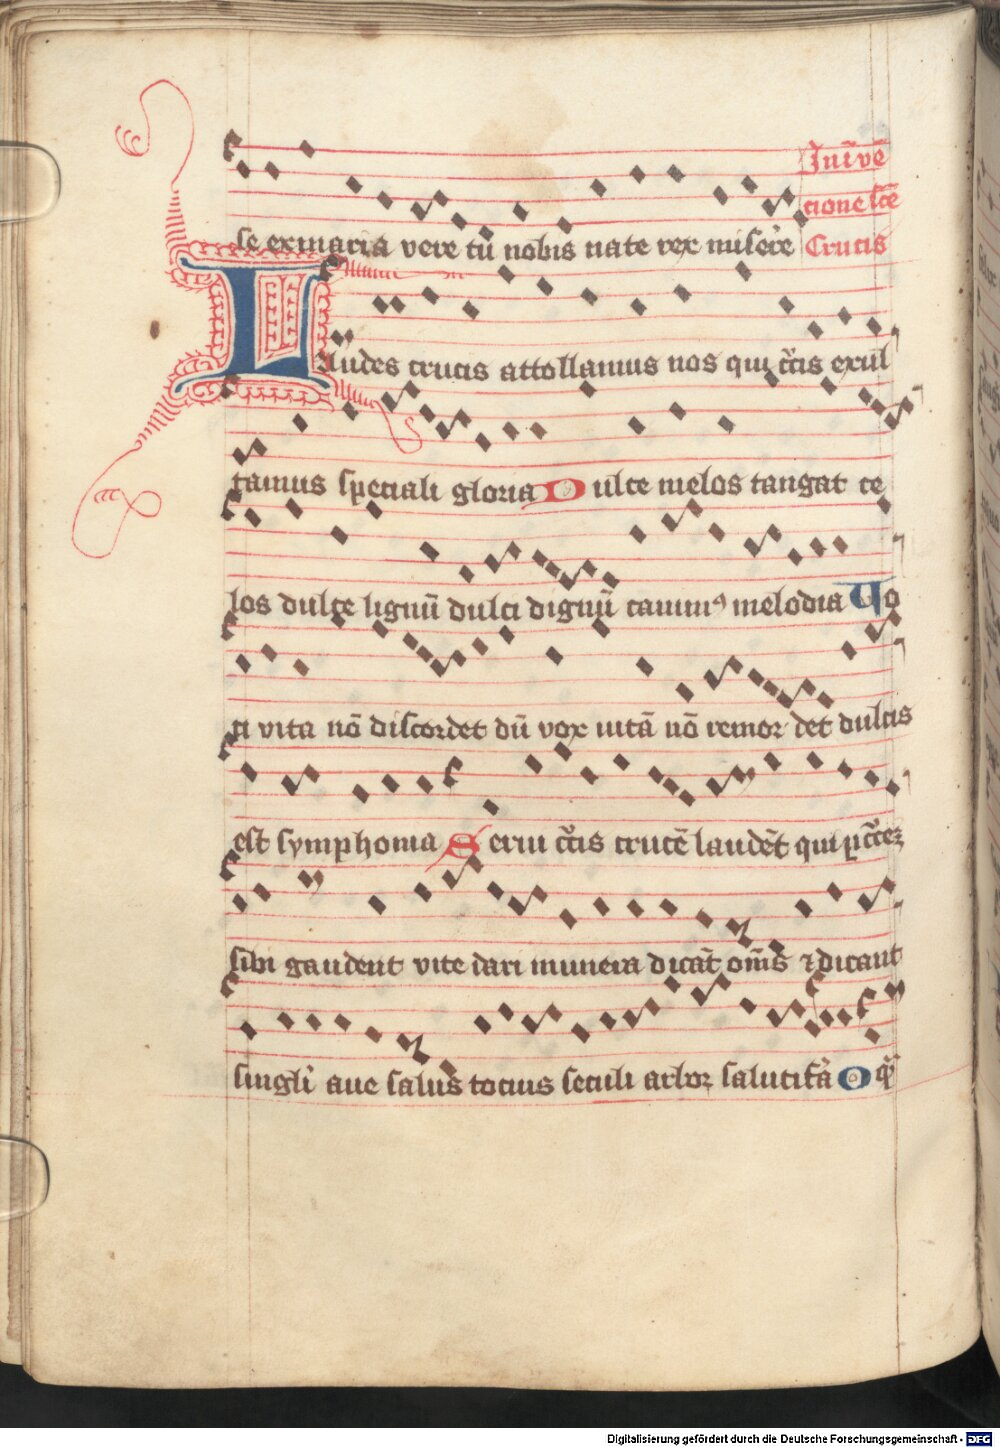 se ex maria vere tū nobis nate rex misere
Jnūē
cione scē
Crucis
Laudes crucis attollamus nos qui c̄cis exul
tamus speciali gloria Dulce melos tangat ce
los dulce lignū dulci dignū canimꝰ melodia Uo
ci vita nō discordet dū vox uitā nō remordet dulcis
est symphonia Serui c̄cis crucē laudēt qui p c̄cez
sibi gaudent vite dari munera dicāt om̄s ⁊ dicant
singli aue salus tocius seculi arbor salutifa O qͣ
Digitalisierung gefördert durch die Deutsche Forschungsgemeinschaft - DFG